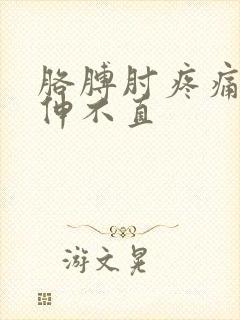 胳膊肘疼痛
伸不直
游文晃